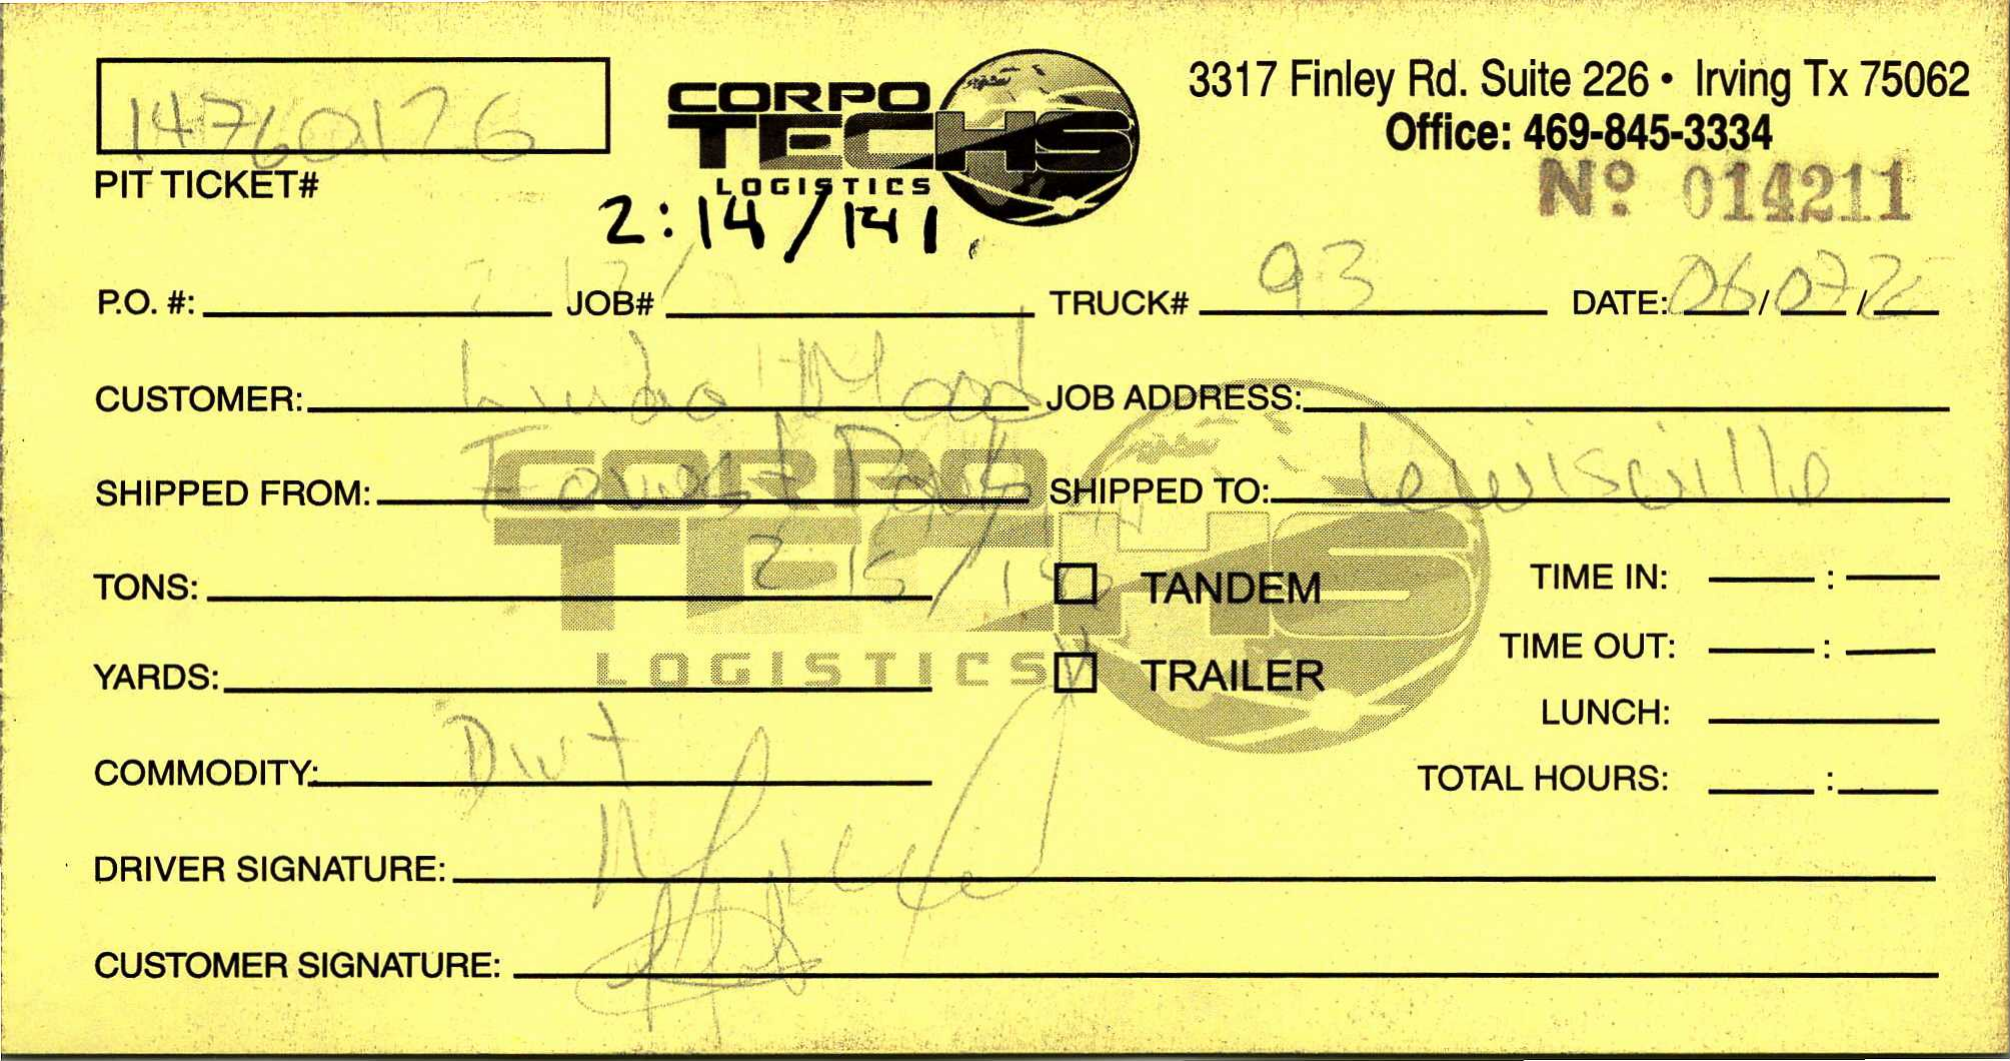 14760176
CORPO TECHS LOGISTICS
3317 Finley Rd. Suite 226 • Irving Tx 75062
Office: 469-845-3334
PIT TICKET#
Nº 014211
2:14/141
P.O. #: JOB# TRUCK# 93 DATE: 06/07/2
CUSTOMER: JOB ADDRESS:
SHIPPED FROM: SHIPPED TO: Lewisville
CORPO TECHS LOGISTICS
TONS: 2:15/14 TANDEM TIME IN: :
YARDS: TRAILER TIME OUT: :
LUNCH:
COMMODITY: Dirt TOTAL HOURS: :
DRIVER SIGNATURE:
CUSTOMER SIGNATURE: